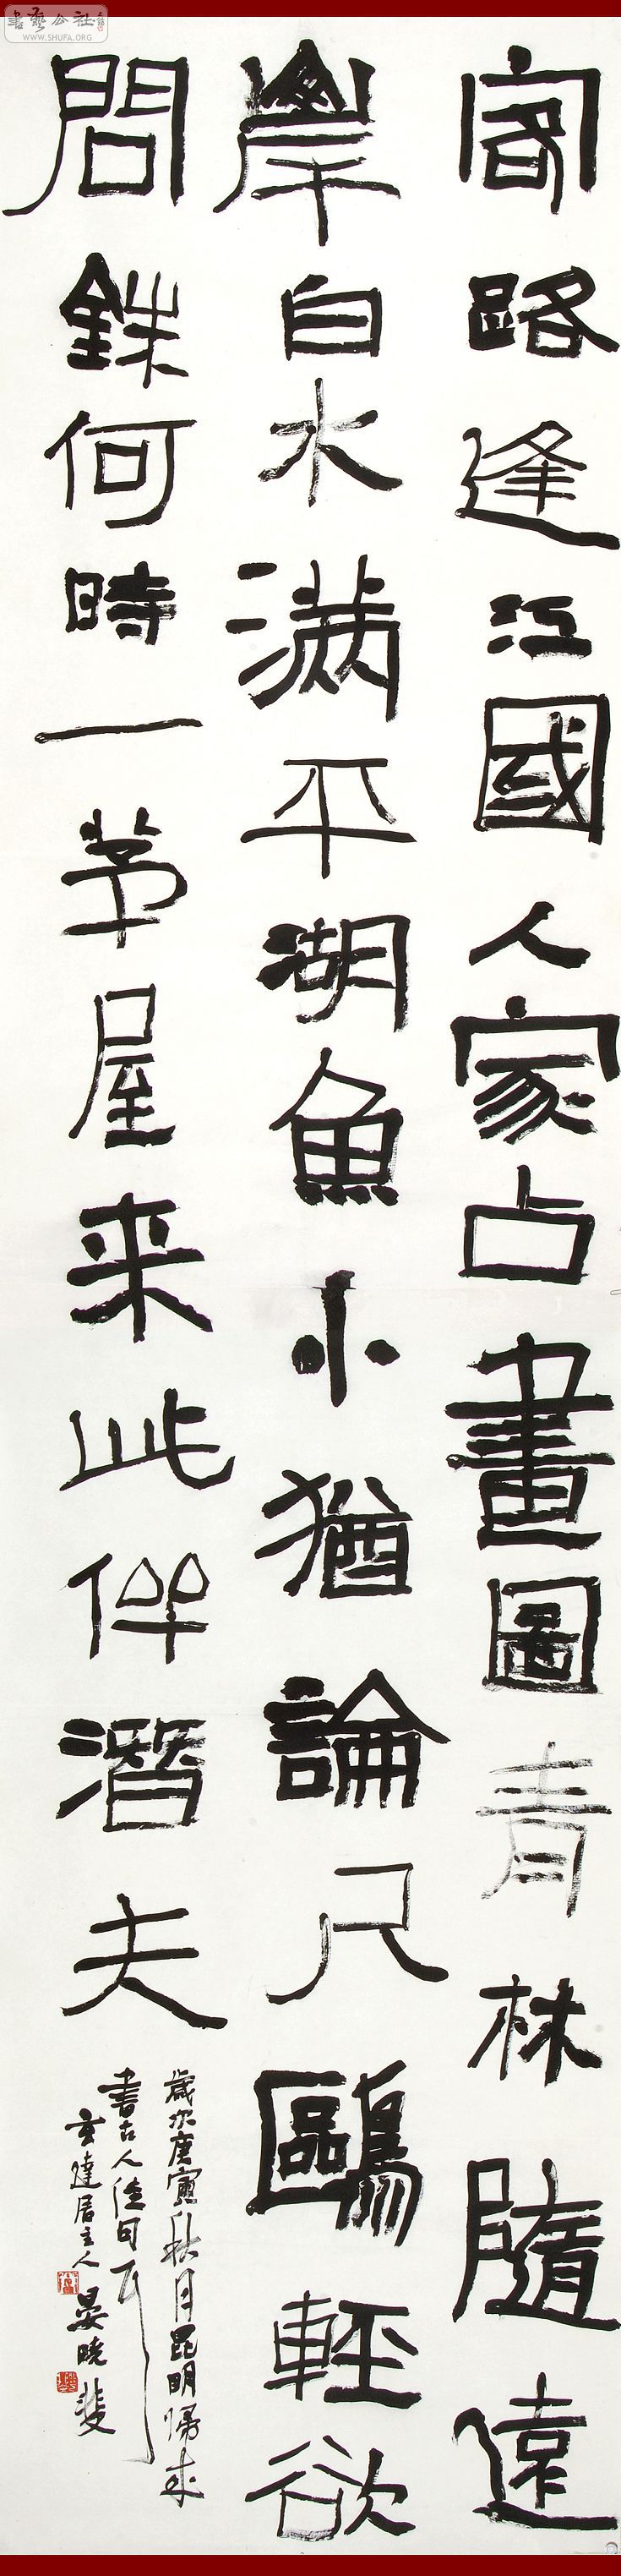 客路逢江國人家占畫圖青林隨遠
岸白水滿平湖魚小猶論尺鷗輕欲
問銖何時一茅屋来此伴潛夫
歲次庚寅秋月昆明歸来
書古人佳句耳
玄達居主人晏曉斐
書藝公社
WWW.SHUFA.ORG